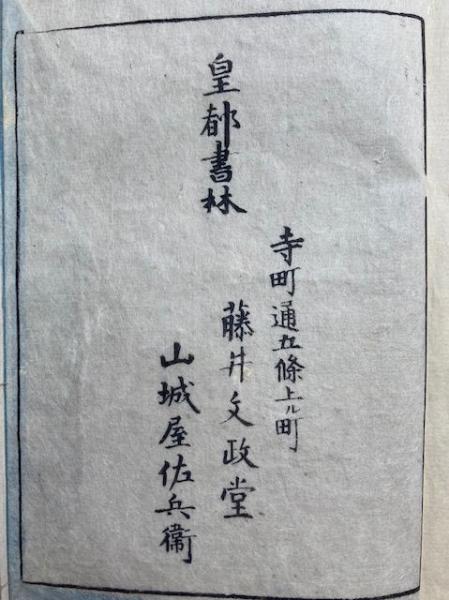 皇都書林
寺町通五條上ル町
藤井文政堂
山城屋佐兵衞